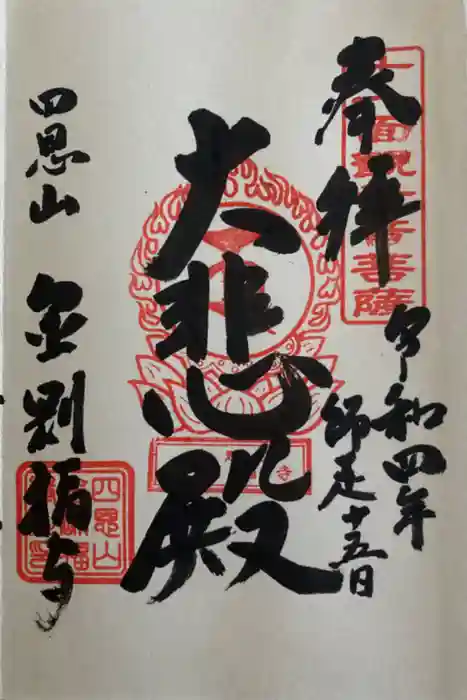 奉拝
十一面観世音菩薩
令和四年
師走十五日
大悲殿
四恩山
金剛福寺
四恩山